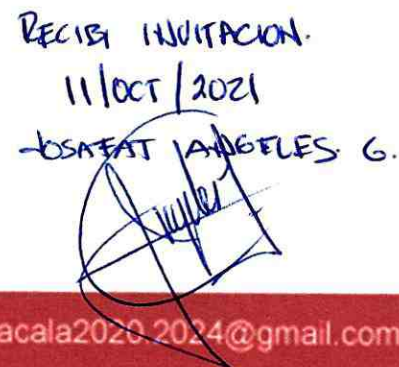 RECIBI INVITACION.
11/OCT/2021
JOSAFAT ANGELES G.
acala2020.2024@gmail.com